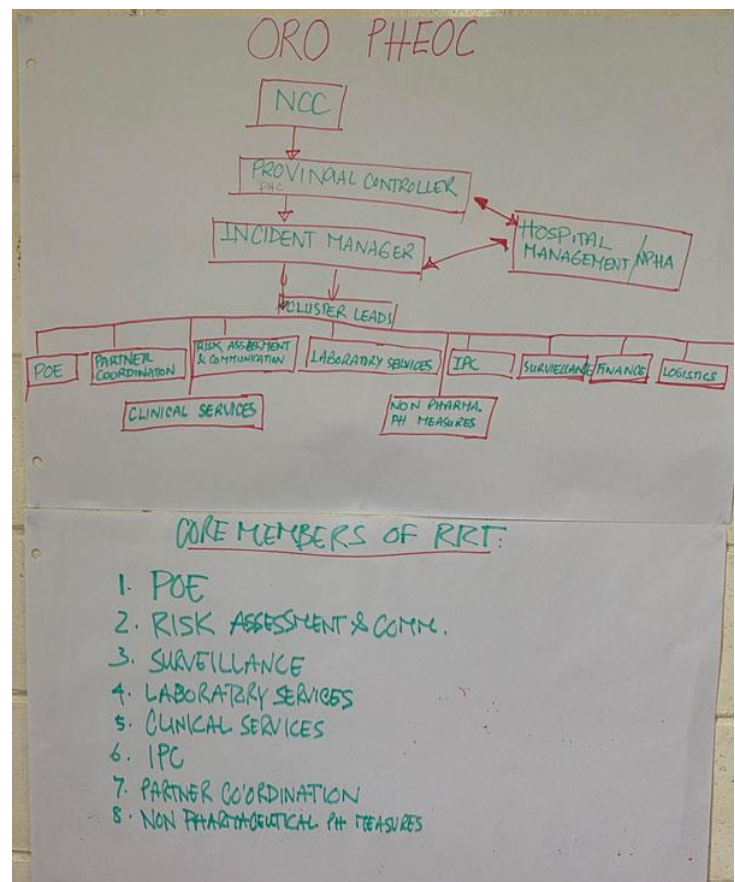 ORO PHEOC
NCC
PROVINCIAL CONTROLLER
PHC
INCIDENT MANAGER
HOSPITAL
MANAGEMENT / NPHA
CLUSTER LEADS
POE
PARTNER
COORDINATION
RISK ASSBERMENT
& COMMUNICATION
LABORATORY SERVICES
IPC
SURVIELLANCE
FINANCE
LOGISTICS
CLINICAL SERVICES
NON PHARMA.
PH MEASURES
CORE MEMBERS OF RRT:
1. POE
2. RISK ASSESSMENT & COMM.
3. SURVEILLANCE
4. LABORATORY SERVICES
5. CLINICAL SERVICES
6. IPC
7. PARTNER CO'ORDINATION
8. NON PHARMACEUTICAL PH MEASURES